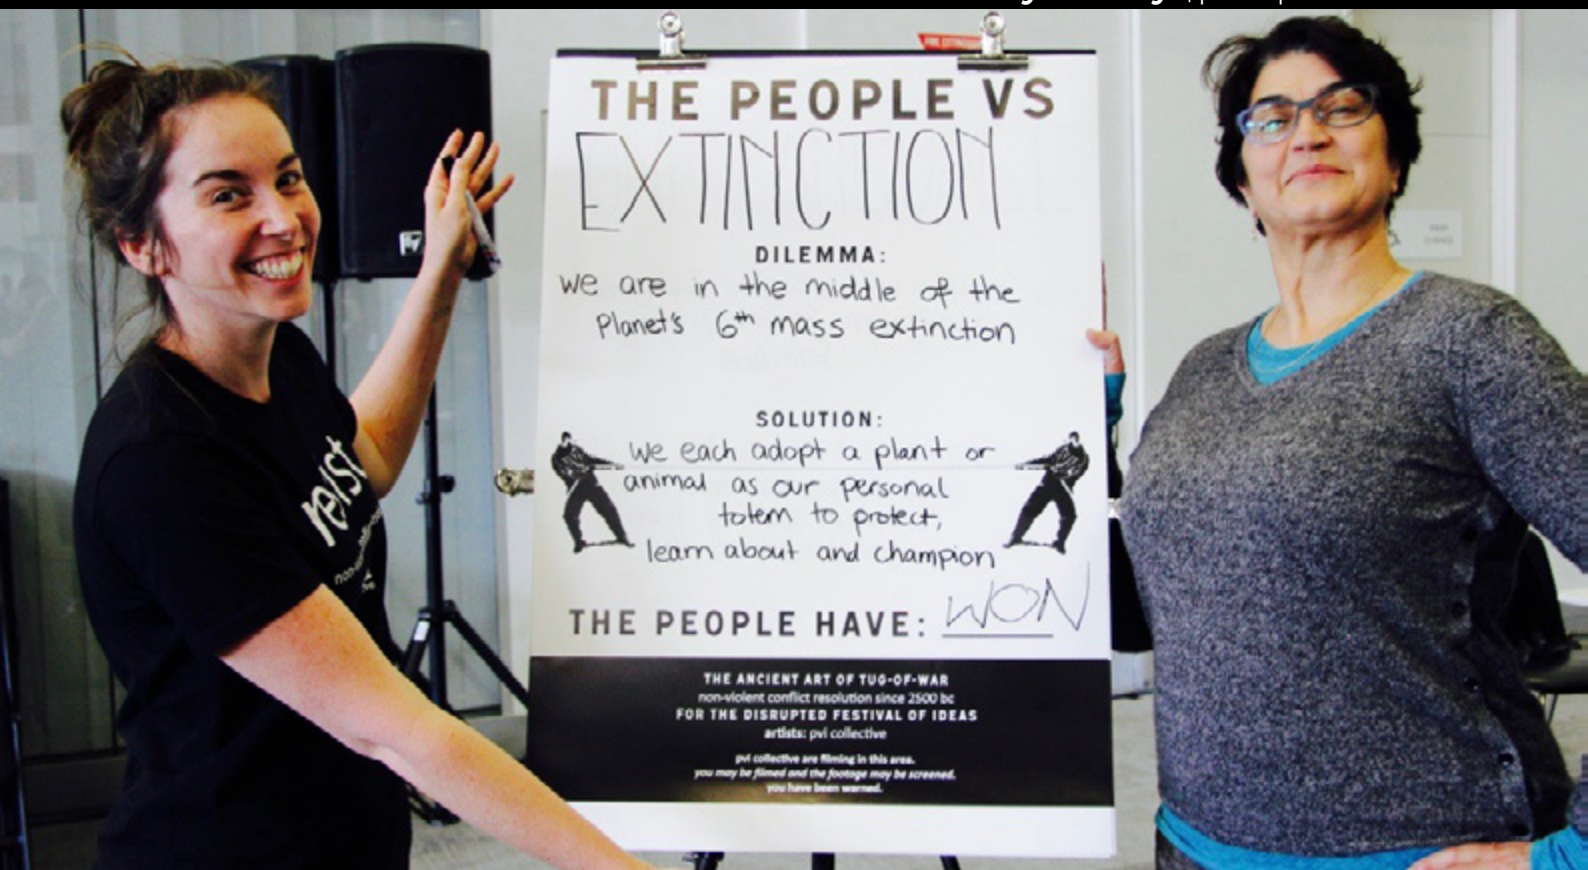 THE PEOPLE VS
EXTINCTION
DILEMMA:
we are in the middle of the
Planet's 6th mass extinction
SOLUTION:
We each adopt a plant or
animal as our personal
totem to protect,
learn about and champion
THE PEOPLE HAVE: WON
THE ANCIENT ART OF TUG-OF-WAR
non-violent conflict resolution since 2500 bc
FOR THE DISRUPTED FESTIVAL OF IDEAS
artists: pvi collective
pvi collective are filming in this area.
you may be filmed and the footage may be screened.
you have been warned.
resist